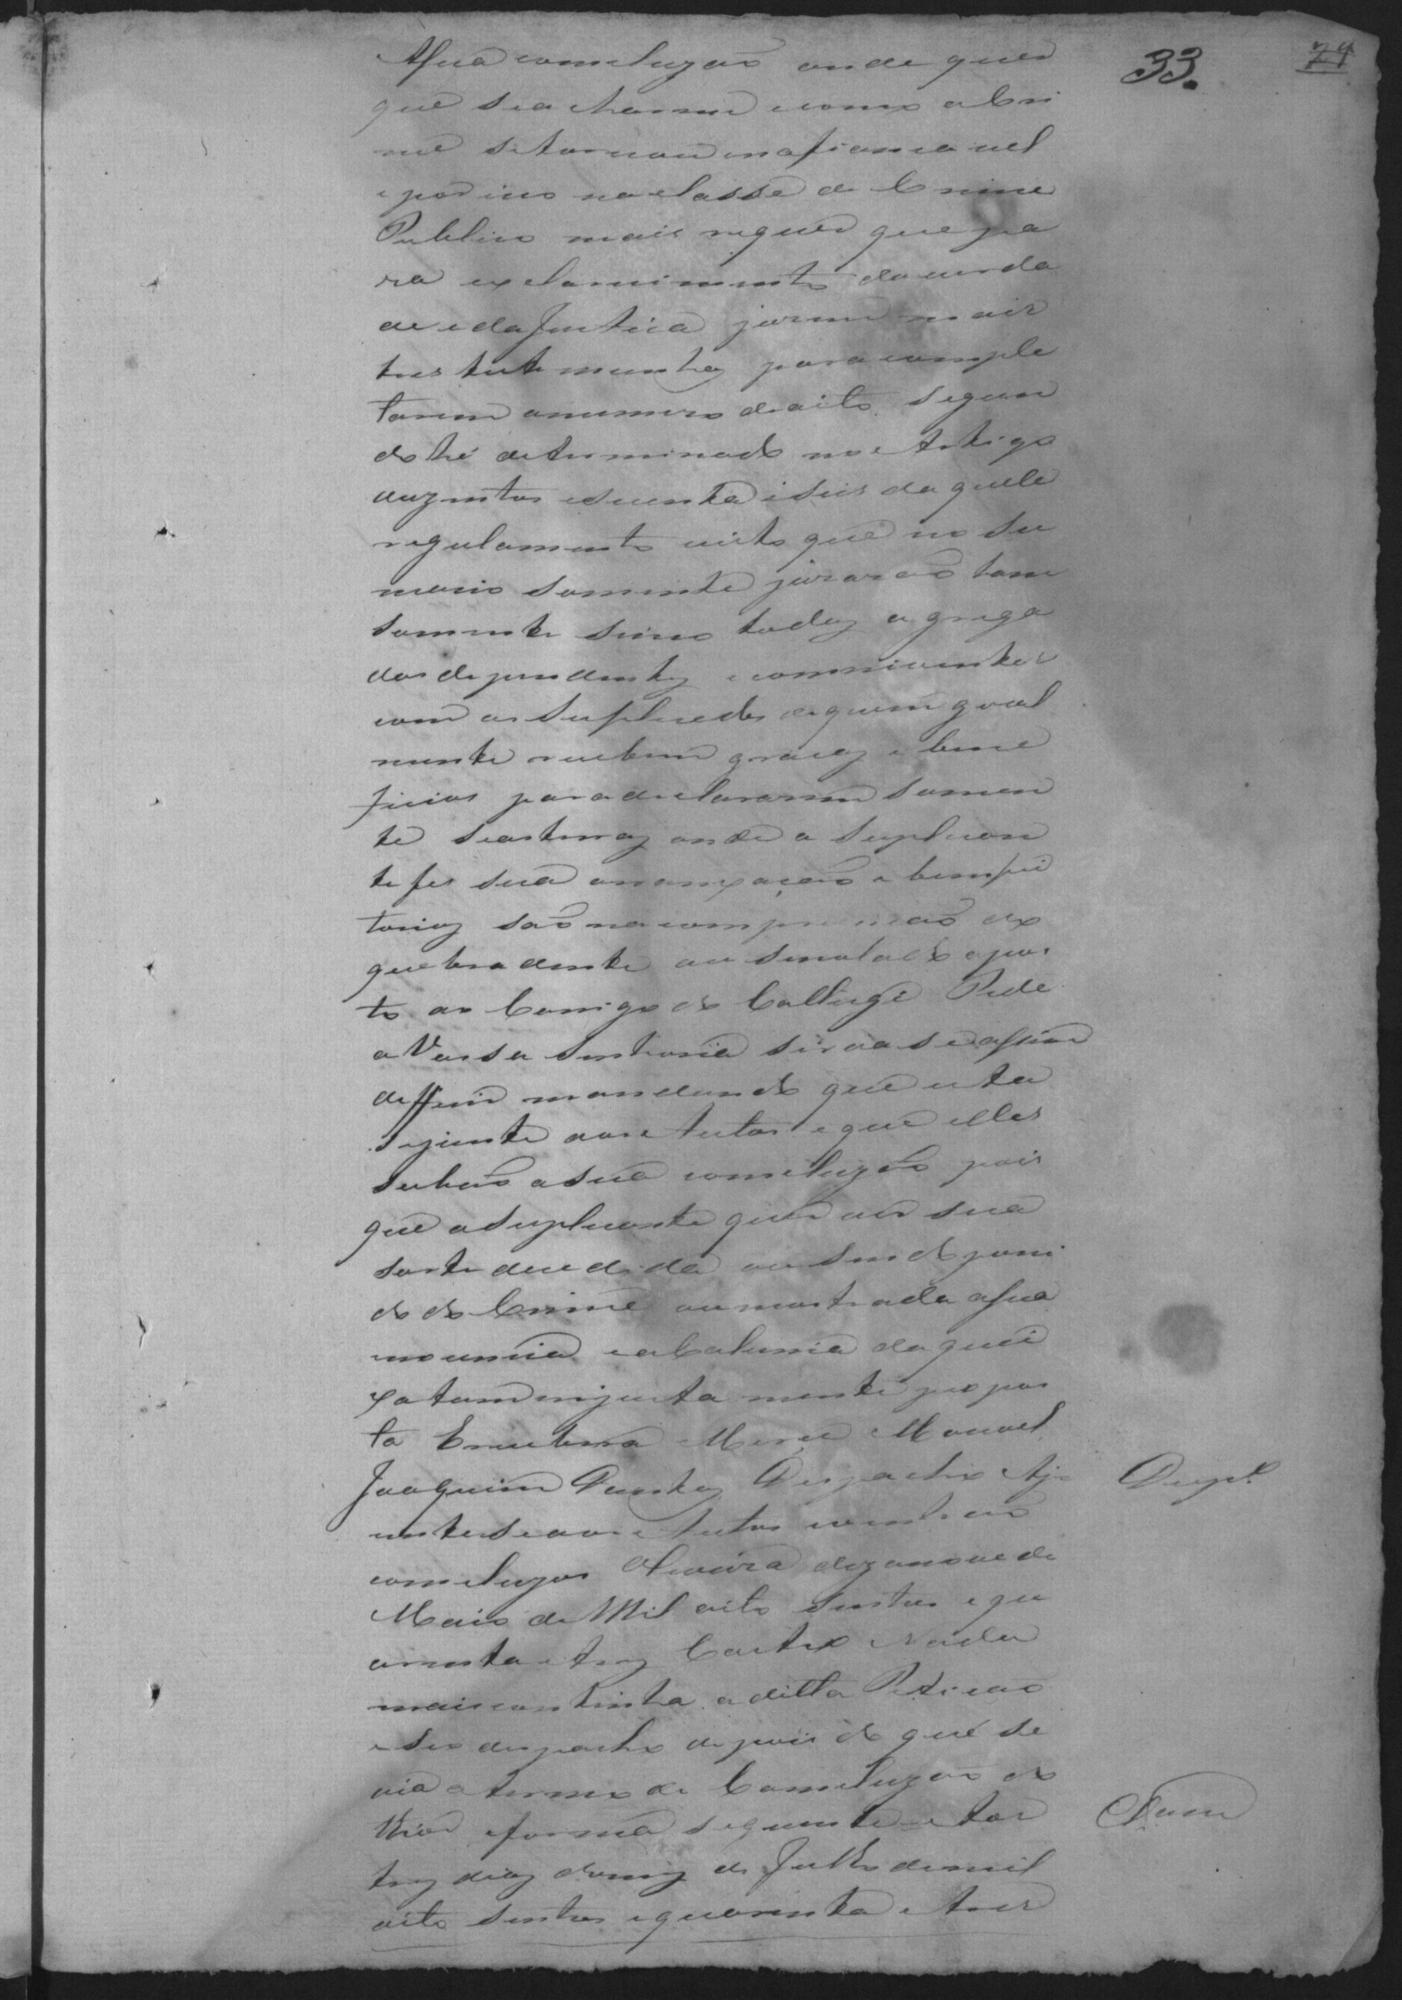 33.
79
Asua comcluzaõ onde quer
que se acharem como o Cri
me se tornou inafiancavel
e por iço na classe de Crime
Publico mais requer que pa
ra exclarecimento da verda
de e da Justica jurem mais
tres testemunhas para comple
tarem o numero de oito segun
do hé determinado no Artigo
duzentos e secenta e seis daquele
regulamento visto que no Su
mario somente jurarão tam
somente sinco todas agrega
dos dependentes e conniventes
com os Suplicados de quem geral
mente recebem gracas e bene
ficios para declararem somen
te se as terras onde a Suplican
te fes sua arranxaçaõ e bemfei
torias saõ na comprencaõ do
quebradente ou senalado apos
to ao Conigo do Collegé Pede
a Vossa Senhoria sirva se assim
defferir mandando que esta
se junte aos Autos e que elles
subaõ a sua comcluzaõ pois
que a Suplicante quer ver sua
sorte decedida ou sendo puni
do do Crime ou mostrada asua
inocencia e a Calunia da quei
xa tam injusta mente propos
ta Erecebera Merce Manoel
Joaquim Dantas Despacho Aju
Desp.º
ntese aos Autos e venhaõ
comcluzos Oliveira dezanove de
Maio de Mil oito sentos e qu
arenta e tres Castro Nada
mais continha a ditta Peticaõ
e seo despacho depois do que se
via o termo de Comcluzaõ do
thior e forma seguinte Aos
tres dias do mes de Julho de mil
oito sentos e quarenta e tres